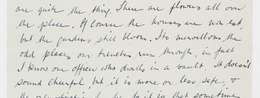 are quite the thing. There are flowers all over
the place. Of course the houses are wrecked,
but the gardens still bloom. Its marvellous the
odd places our trenches run through, in fact
I know one officer who dwells in a vault. It doesn't
sound cheerful, but it is more or less safe, &
is that sometimes